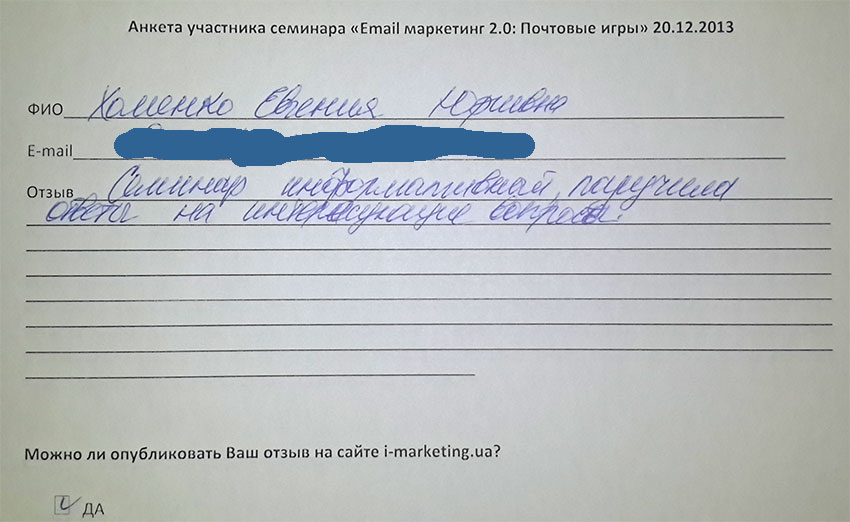 Анкета участника семинара «Email маркетинг 2.0: Почтовые игры» 20.12.2013
ФИО Хоменко Евгения Юриевна
E-mail
Отзыв Семинар информативный, паручила
ответы на интересующие вопросы.
Можно ли опубликовать Ваш отзыв на сайте i-marketing.ua?
ДА